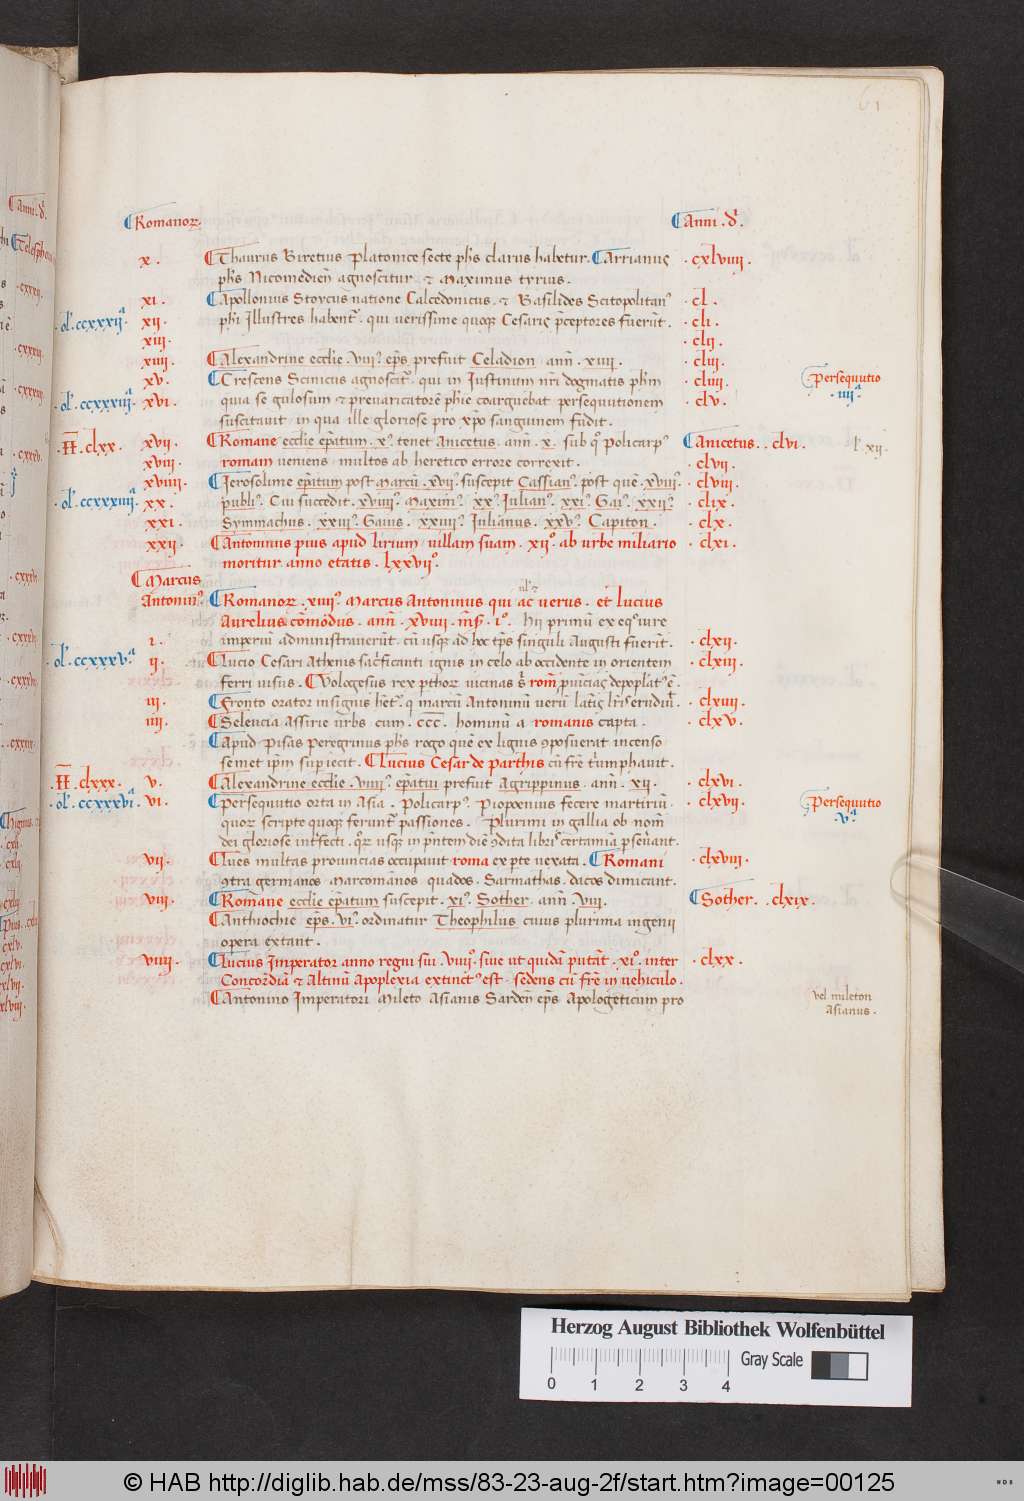 61
Romanoꝝ.
Anni . d̄ .
.x.
Thaurus Biretius Platonice secte ph̄s clarus habetur. Arrianus
. cxlviiii .
ph̄s Nicomediēn agnoscitur . & Maximus tyrius .
xi .
Apollonius Stoycus natione Calcedonicus . & Basilides Scitopolitanꝰ
. cl .
. ol̄. ccxxxiiª.
xii .
phi Illustres habent̄ . qui uerissime quoqꝫ Cesaris p̄ceptores fuerūt .
. cli .
xiii .
. clii .
xiiii .
Alexandrine eccl̄ie . viii? ep̄s prefuit Celadion . ann̄ . xiiii .
. cliii .
xv .
Crescens Scinicus agnoscit̄ . qui in Iustinum nr̄i dogmatis ph̄m
. cliiii .
Persequutio
. iiiiª
. ol̄. ccxxxiiiª.
xvi .
quia se gulosum & preuaricatorē ph̄ie coarguebat . persequutionem
. clv .
suscitauit . in qua ille gloriose pro xp̄o sanguinem fūdit .
. H̄ . clxx .
xvii .
Romane eccl̄ie ep̄atum . x? tenet Anicetus . ann̄ . x . sub q° Policarpꝰ
Anicetus . . clvi .
l̄ xii .
xviii .
romam ueniens . multos ab heretico errore correxit .
. clvii .
xviiii .
Ierosolime ep̄atum post Marcū . xvii? suscepit Cassianꝰ . post quē . xviii?
. clviii .
. ol̄. ccxxxiiiiª.
xx .
publiꝰ . Cui succedit . xviiii? Maximꝰ . xx? Iulianꝰ . xxi? Gaiꝰ . xxii?
. clix .
xxi .
Symmachus . xxiii? Gaius . xxiiii? Iulianus . xxv? Capiton .
. clx .
xxii .
Antoninus pius apud lirium uillam suam . xii? ab urbe miliario
. clxi .
moritur anno etatis . lxxvii? .
Marcus
Antoninꝰ
Romanoꝝ . xviii? Marcus Antoninus qui ac uerus . et lucius
Aurelius cōmodus . ann̄ . xviiii . ms̄ . i? . Hii primū ex eq°iure
i .
imperiū administrauerūt . cū usqꝫ ad hoc tp̄s singuli Augusti fuerīt .
. clxii .
. ol̄. ccxxxvª .
ii .
lucio Cesari Athenis sacrificanti ignis in celo ab occidente in orientem
. clxiii .
ferri uisus . Vologesus rex pthoꝝ uicinas s̄ rom̄ . puīcias depoplatꝰ ē .
iii .
Fronto orator insignis het̄ . q̄ marcū Antoninū uerū latīs lr̄is erudiuīt .
. clxiiii .
iiii .
Selencia Assirie urbs cum . ccc . hominū a romanis capta .
. clxv .
Apud Pisas Peregrinus ph̄s rogo quē ex lignis ꝯposuerat incenso
semet ip̄m supiecit . Lucius Cesar de parthis cū fr̄e tūmphauit .
. H̄ . clxxx .
v .
Alexandrine eccl̄ie . viiii? ep̄atui prefuit Agrippinus . ann̄ . xii .
. clxvi .
. ol̄. ccxxxviª.
vi .
Persequutio orta in Asia . Policarpꝰ . & Piopoenius fecere martiriū .
. clxvii .
Persequutio
. vª
quoꝝ scripte quoqꝫ ferunt̄ passiones . Plurimi in gallia ob nom̄
dei gloriose int̄fecti . qoꝝ usqꝫ in p̄ntem diē ꝯdita libris certamīa pseūant .
vii .
Lues multas prouincias occupauit roma ex pte uexata . Romani
. clxviii .
ꝯtra germanos Marcomānos quados . Sarmathas . dacos dimicant .
viii .
Romane eccl̄ie ep̄atum suscepit . xi? Sother . ann̄ . viii .
Sother . . clxix .
Anthiochie ep̄s . vi? ordinatur Theophilus cuius plurima ingenii
opera extant .
viiii .
Lucius Imperator anno regni sui . viiii? siue ut quidā putāt . xi? inter
. clxx .
Concordiā & Altinū Apoplexia extinctꝰ est . sedens cū fr̄e in uehiculo .
Antonino Imperatori Mileto Asianis Sardēn ep̄s Apologeticum pro
vel mileton
Asianus .
Herzog August Bibliothek Wolfenbüttel
Gray Scale
0 1 2 3 4
© HAB http://diglib.hab.de/mss/83-23-aug-2f/start.htm?image=00125